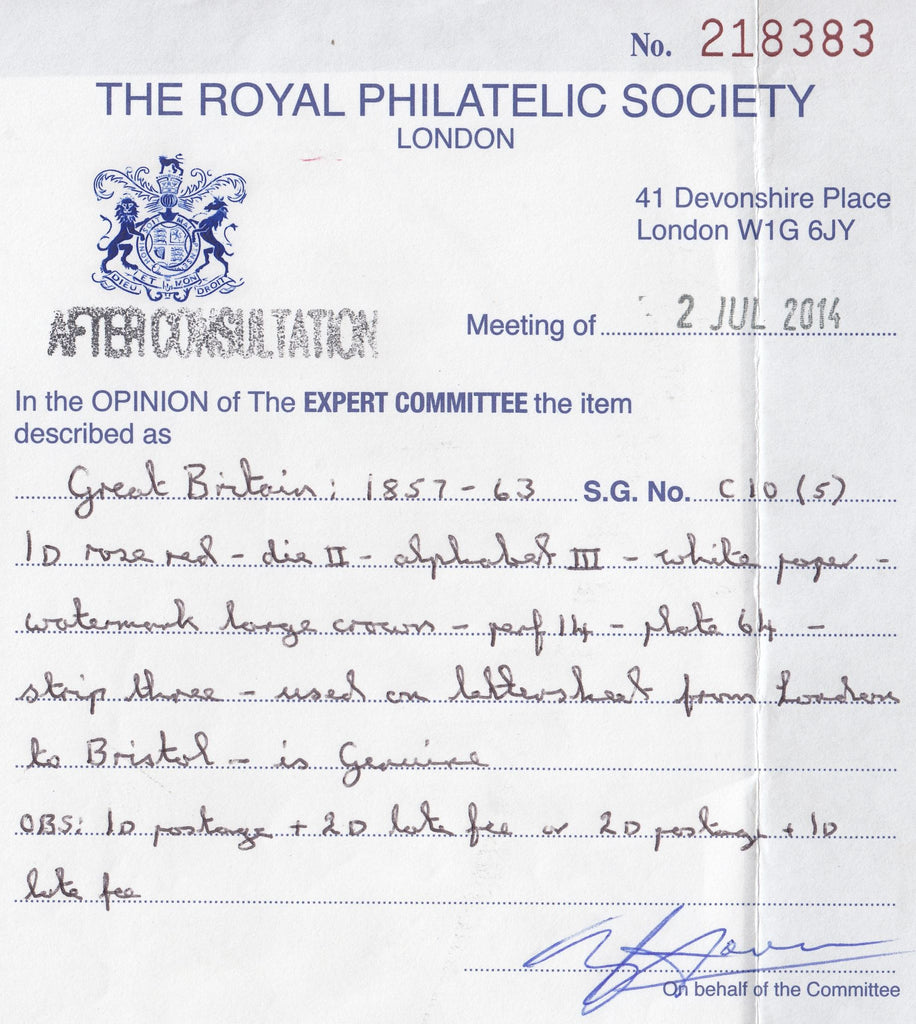 No. 218383
THE ROYAL PHILATELIC SOCIETY
LONDON
41 Devonshire Place
London W1G 6JY
DIEU ET MON DROIT
AFTER CONSULTATION
Meeting of 2 JUL 2014
In the OPINION of The EXPERT COMMITTEE the item
described as
Great Britain: 1857-63 S.G. No. C10 (5)
1D rose red - die II - alphabet III - white paper -
watermark large crown - perf 14 - plate 64 -
strip three - used on lettersheet from London
to Bristol - is Genuine
OBS: 1D postage + 2D late fee or 2D postage + 1D
late fee
On behalf of the Committee